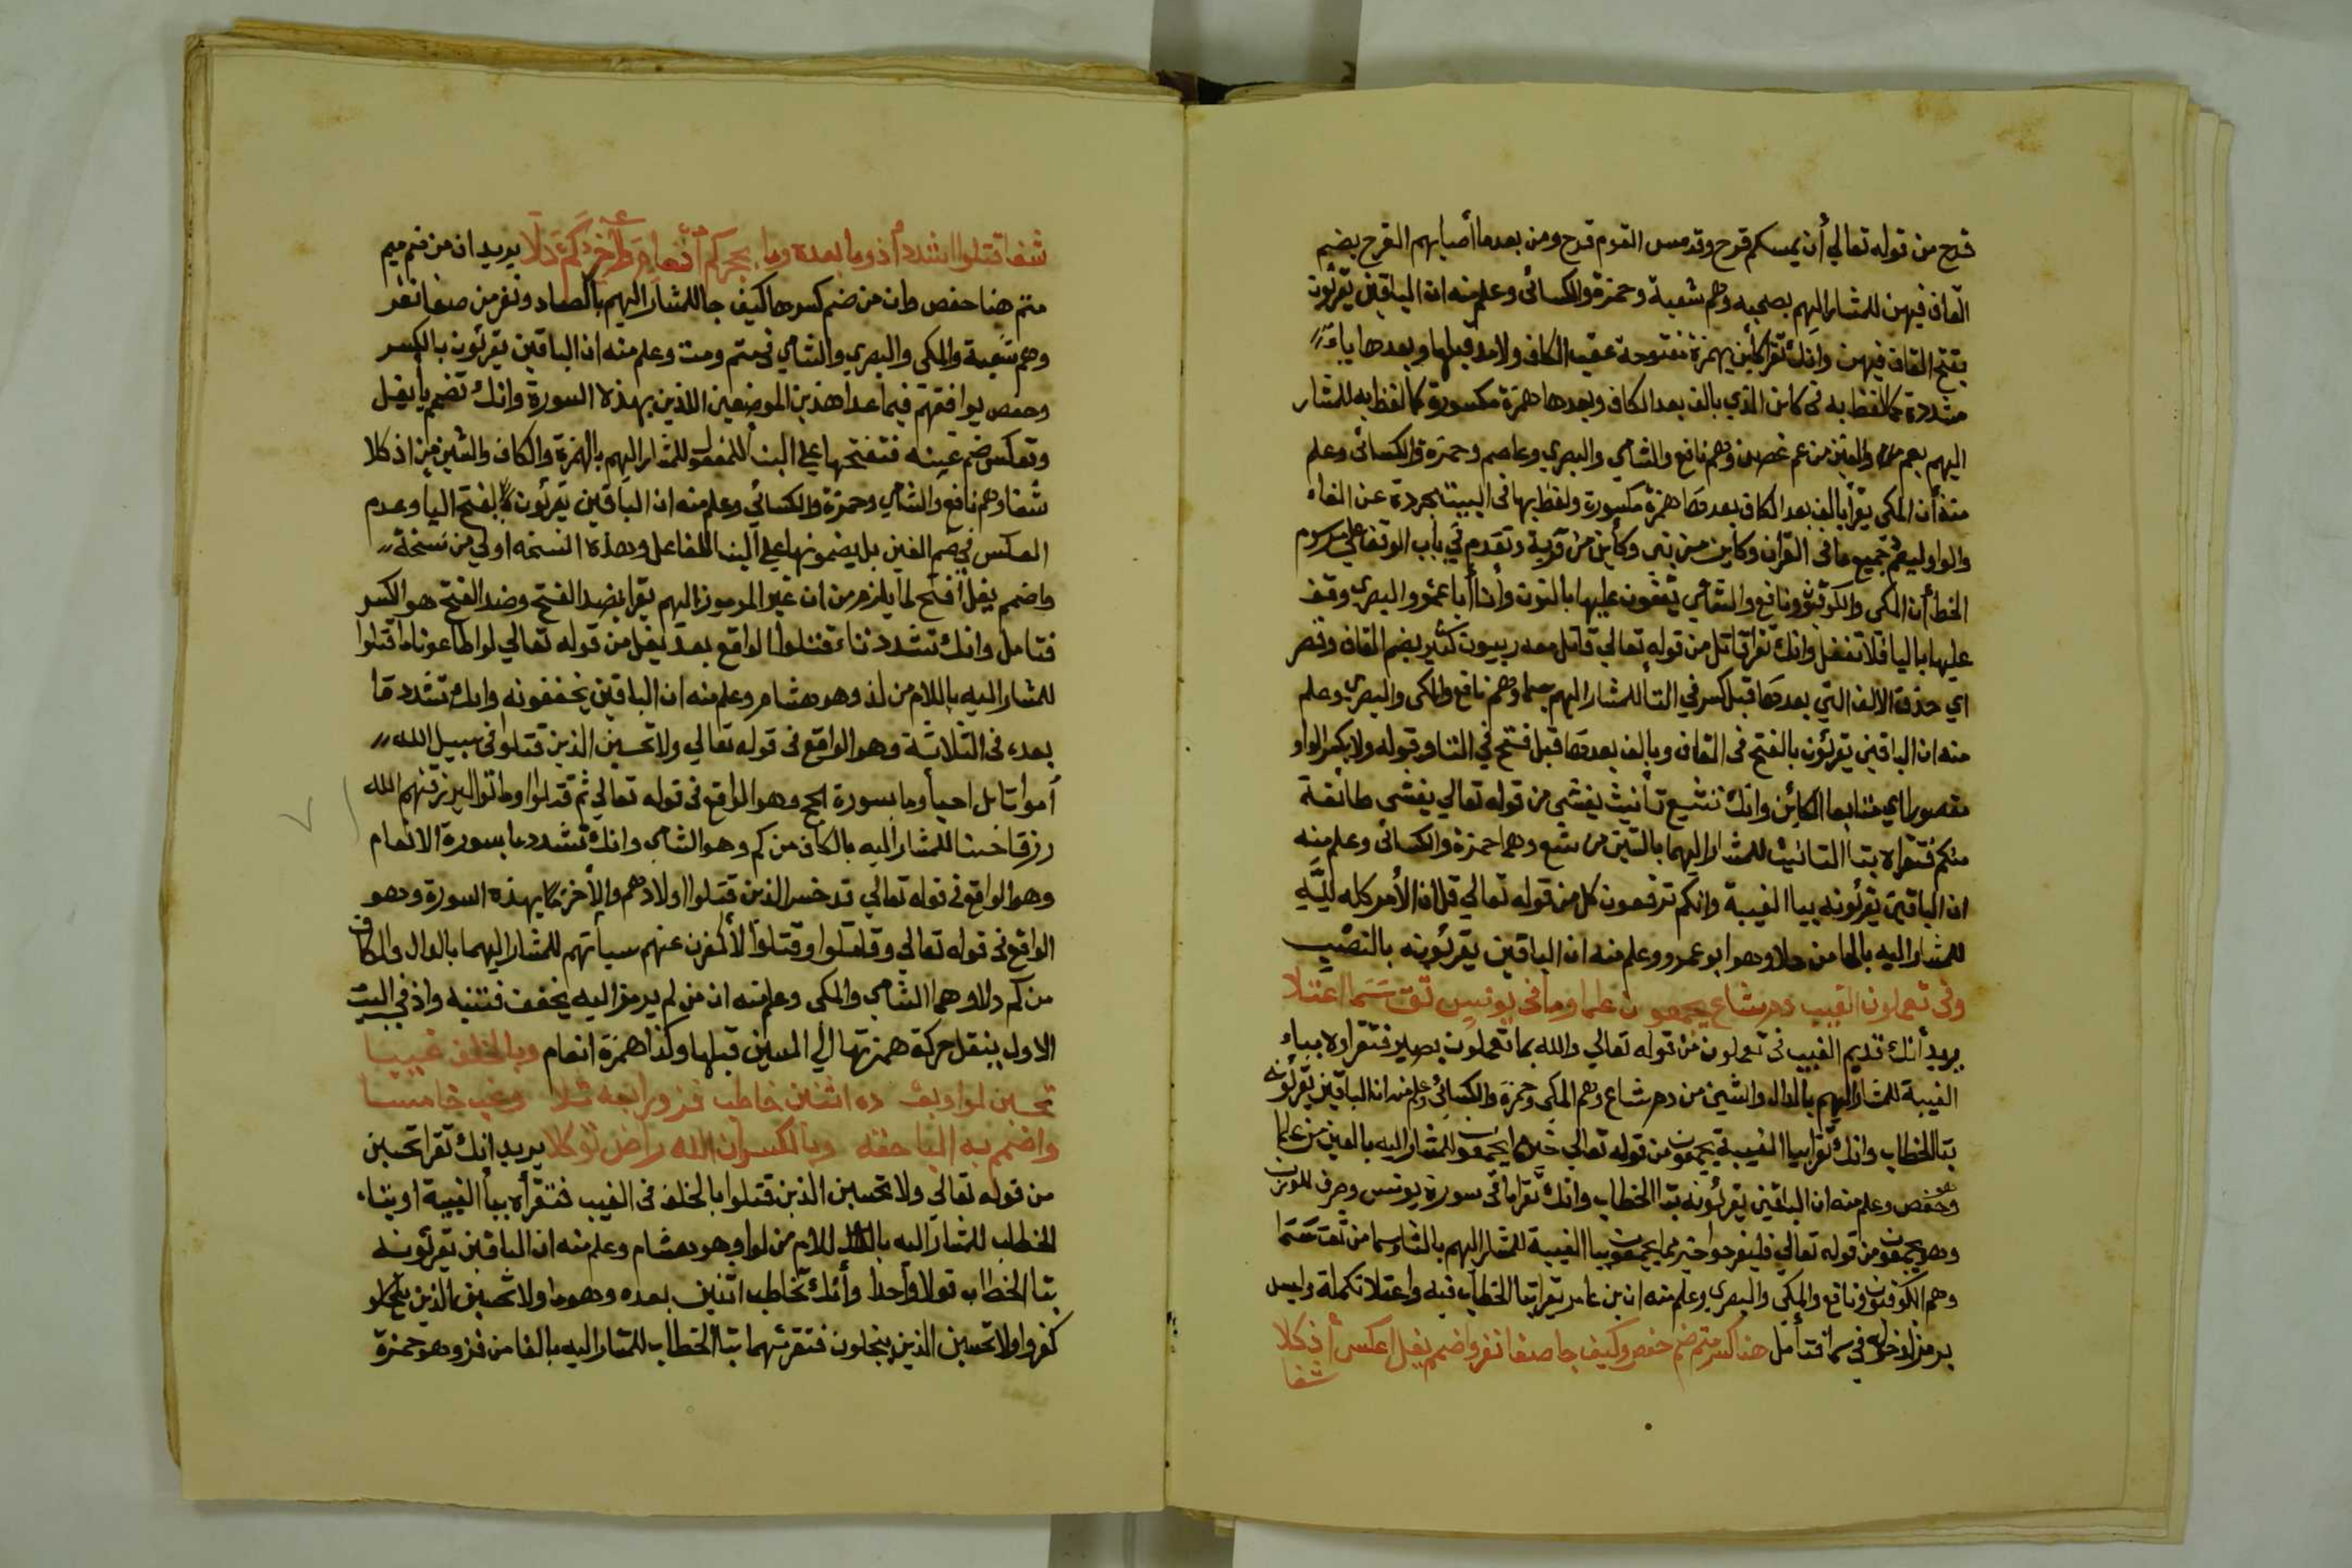 قرح من قوله تعالي أن يمسسكم قرح وقد مس القوم قرح ومن بعد ما أصابهم القرح بضم
القاف فيهن للمشار اليهم بصحبه وهم شعبة وحمزة والكسائى وعلم منه ان الباقين يقرئون
بفتح القاف فيهن وانك تقرا كأين بهمزة مفتوحة عقب الكاف ولا مد قبلها وبعدها ياء
مشددة كما لفظ به فى كائن الذي بالف بعد الكاف وبعدها همزة مكسورة كما لفظ به للمشار
اليهم بعم والغين من عم غصن وهم نافع والشامي والبصري وعاصم وحمزة والكسائى وعلم
منه أن المكى يقرأ بالف بعد الكاف بعدها همزة مكسورة ولفظ بها فى البيت مجردة عن الفاء
والواو ليعم جميع ما فى القران وكاين من نبى وكأين من قرية وتقدم فى باب الوقف على مرسوم
الخط أن المكى والكوفيون ونافع والشامي يقفون عليها بالنون وأن أبا عمرو البصرى وقف
عليها باليا فلا تغفل وانك تقرا قاتل من قوله تعالي قاتل معه ربيون كثير بضم القاف وقصر
اي حذف الالف التي بعدها قبل كسر في التا للمشار اليهم بسما وهم نافع والمكى والبصرى وعلم
منه ان الباقين يقرئون بالفتح فى القاف وبالف بعدها قبل فتح في التا وقوله ولا بكسر الواو
مقصورا اي متابعا لكائن وانك تشيع تأنيث يغشي من قوله تعالي يغشى طائفة
منكم فتقراه بتا التانيث للمشار اليهما بالشين من شع وهما حمزة والكسائى وعلم منه
ان الباقين يقرئونه بيا الغيبة وانكم ترفعون كل من قوله تعالي قل ان الأمر كله لله
للمشار اليه بالحا من حلا وهو ابو عمرو وعلم منه ان الباقين يقرئونه بالنصب
وفى تعملون الغيب دم شاع يجمعون علما وما فى يونس ثق سما اعتلا
يريد أنك تديم الغيب فى تعملون من قوله تعالي والله بما تعملون بصير فتقراه بياء
الغيبة للمشار اليهم بالدال والشين من دم شاع وهم المكى وحمزة والكسائى وعلم منه ان الباقين يقرئونه
بتا الخطاب وانك تقرا بيا الغيبة يجمعون من قوله تعالي خير مما يجمعون للمشار اليه بالعين من علما
وهو حفص وعلم منه ان الباقين يقرئونه بتا الخطاب وانك تقرا ما فى سورة يونس
وهو يجمعون من قوله تعالي فليفرحوا خير مما يجمعون بيا الغيبة للمشار اليهم بالثا وسما من ثق سما
وهم الكوفيون ونافع والمكى والبصرى وعلم منه ان بن عامر يقرا بتا الخطاب فيه واعتلا تكملة وليس
برمز لدخوله في سما فتأمل هنا كسر متم ضم حفص وكيف جا صفا نفر واضمم يغل اعكس أذ كلا
شفا
شفا قتلوا اشدد أذ وما بعده وما بحج كم أنعام والأخر كم دلا يريد ان من ضم ميم
متم هنا حفص وان من ضم كسرها كيف جا للمشار اليهم بالصاد ونفر من صفا نفر
وهم شعبة والمكى والبصري والشامي فى متم ومت وعلم منه ان الباقين يقرئون بالكسر
وحفص يوافقهم فيما عدا هذين الموضعين اللذين بهذه السورة وانك تضم يا يغل
وتعكس ضم غينه فتفتحها علي البنا للمفعول للمشار اليهم بالهمزة والكاف والشين من اذ كلا
شفا وهم نافع والشامي وحمزة والكسائي وعلم منه ان الباقين يقرئون بفتح اليا وعدم
العكس في ضم الغين بل يضمونها علي البنا للفاعل وهذه النسخه اولي من نسخة
واضمم يغل افتح لما يلزم من ان غير المرموز اليهم يقرا بضد الفتح وضد الفتح هو الكسر
فتامل وانك تشدد تاء قتلوا الواقع بعد يغل من قوله تعالي لو اطاعونا ما قتلوا
للمشار اليه باللام من لذ وهو هشام وعلم منه ان الباقين يخففونه وانك تشدد ما
بعده فى الثلاثة وهو الواقع فى قوله تعالي ولا تحسبن الذين قتلوا فى سبيل الله
أمواتا بل احيا وما بسورة الحج وهو الواقع فى قوله تعالي ثم قتلوا او ماتوا ليرزقنهم الله
رزقا حسنا للمشار اليه بالكاف من كم وهو الشامى وانك تشدد ما بسورة الانعام
وهو الواقع فى قوله تعالي قد خسر الذين قتلوا اولادهم والأخر بهذه السورة وهو
الواقع فى قوله تعالي وقاتلوا وقتلوا لأكفرن عنهم سيأتهم للمشار اليهما بالدال والكاف
من كم دلا وهما الشامي والمكى وعلم منه ان من لم يرمز اليه يخفف فتنبه واذ في البيت
الاول بنقل حركة همزتها الي السين قبلها وكذا همزة انعام وبالخلف غيبا
تحسبن لوا وبعده اثنين خاطب فز ورابعه ثلا وغيب خامسا
واضمم به البا حقه وبالكسر ان الله راض توكلا يريد انك تقرا تحسبن
من قوله تعالي ولا تحسبن الذين قتلوا بالخلف فى الغيب فتقرأه بيا الغيبة او بتاء
الخطاب للمشار اليه باللام من لوا وهو هشام وعلم منه ان الباقين يقرئونه
بتا الخطاب قولا واحدا وأنك تخاطب اثنين بعده وهما ولا تحسبن الذين
كفروا ولا تحسبن الذين يبخلون فتقرئهما بتا الخطاب للمشار اليه بالفا من فز وهو حمزة